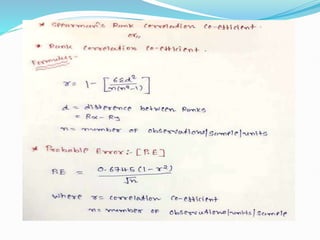 * Spearman's Rank Correlation Co-efficient.
or,
* Rank Correlation Co-efficient.
Formulas:-
r = 1 - [6Σd²/n(n²-1)]
d = difference between Ranks
= Rx - Ry
n = number of observations/sample/units
* Probable Error:- [P.E]
P.E = 0.6745 (1-r²)/√n
where r = correlation co-efficient
n = number of observations/units/sample